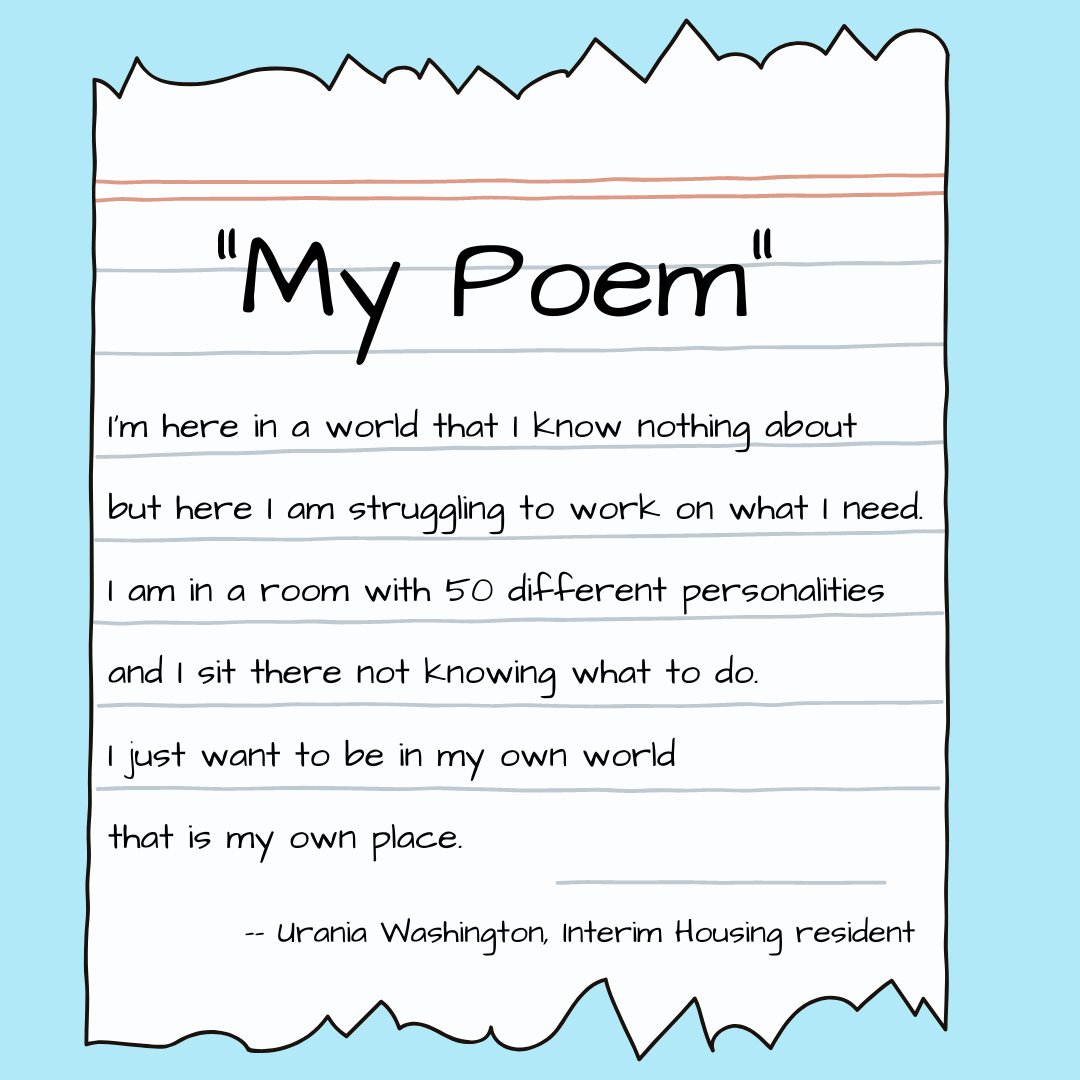 "My Poem"
I'm here in a world that I know nothing about
but here I am struggling to work on what I need.
I am in a room with 50 different personalities
and I sit there not knowing what to do.
I just want to be in my own world
that is my own place.
-- Urania Washington, Interim Housing resident